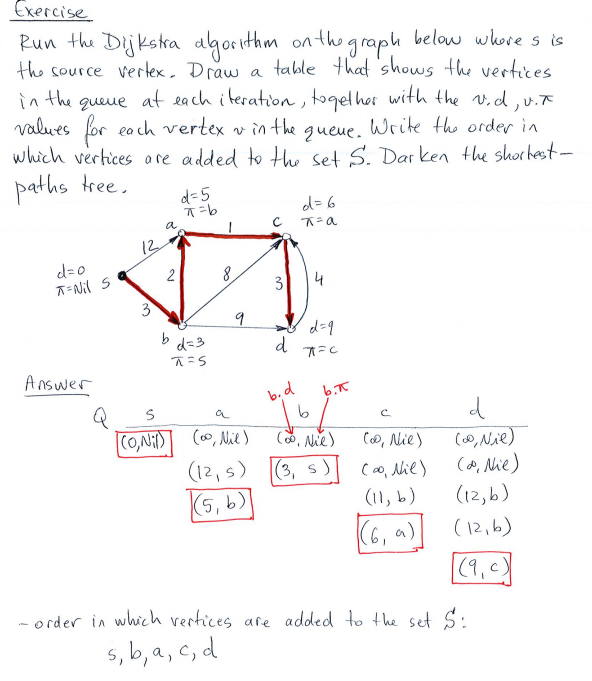 Exercise
Run the Dijkstra algorithm on the graph below where s is
the source vertex. Draw a table that shows the vertices
in the queue at each iteration, together with the v.d, v.π
values for each vertex v in the queue. Write the order in
which vertices are added to the set S. Darken the shortest-
paths tree.
d=5
π=b
d=6
π=a
a
1
c
12
d=0
π=Nil
s
2
8
3
4
3
9
b
d=3
π=s
d
d=9
π=c
Answer
b.d b.π
Q s a b c d
(0,Nil) (∞, Nil) (∞, Nil) (∞, Nil) (∞, Nil)
(12, s) (3, s) (∞, Nil) (∞, Nil)
(5, b) (11, b) (12, b)
(6, a) (12, b)
(9, c)
- order in which vertices are added to the set S:
s, b, a, c, d